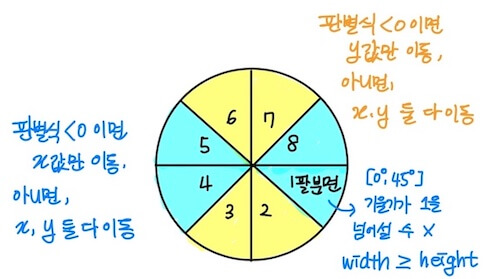 판별식 < 0 이면
y값만 이동,
아니면,
x, y 둘 다 이동
판별식 < 0 이면
x값만 이동,
아니면,
x, y 둘 다 이동
6
7
5
8
4
1팔분면
3
2
[0°, 45°]
기울기가 1을
넘어설 수 ×
width ≥ height